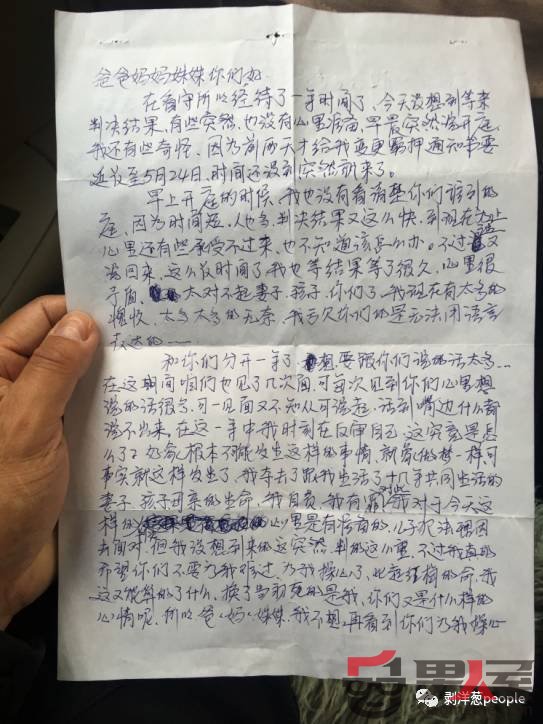 爸爸妈妈妹妹你们好
在看守所已经待了一年时间了、今天没想到等来
判决结果,有些突然,也没有心里准备,早晨突然
我还有些奇怪、因为前两天才给我变更羁押通知书要
延长至5月24日,时间还没到突然就来了。
早上开庭的时候,我也没有看清楚你们谁到的
庭、因为时间短,人也多,判决结果又这么快、到现在为止
心里还有些承受不过来、也不知道该怎么办。不过
话回来、这么长时间了,我也等结果等了很久,心里很
矛盾 太对不起妻子、孩子、你们了、我现在有太多的
愧疚、太多太多的无奈、我亏欠你们的是无法用语言
表达的——
和你们分开一年了 想要跟你们说的话太多…
在这期间咱们也见了几次面,可每次见到你们心里想
说的话很多,可一见面又不知从何说起,话到嘴边什么都
说不出来、在这一年中我时刻在反审自己、这究竟是怎
么了? 根本不可能发生这样的事情、就像做梦一样可
事实就这样发生了、我夺去了跟我生活了十几年共同生活的
妻子、孩子母亲的生命、我自责、我有罪、我对于今天这
样的 心里是有准备的、
去面对,但我没想到来的这突然、判的这么重、不过我真的
希望你们不要为我难过、为我操心了、比起
这又能算的了什么、换了 是我、你们又是什么样的
心情呢、所以爸、妈、妹妹、我不想再看到你们为我操心
男人屋
剥洋葱people